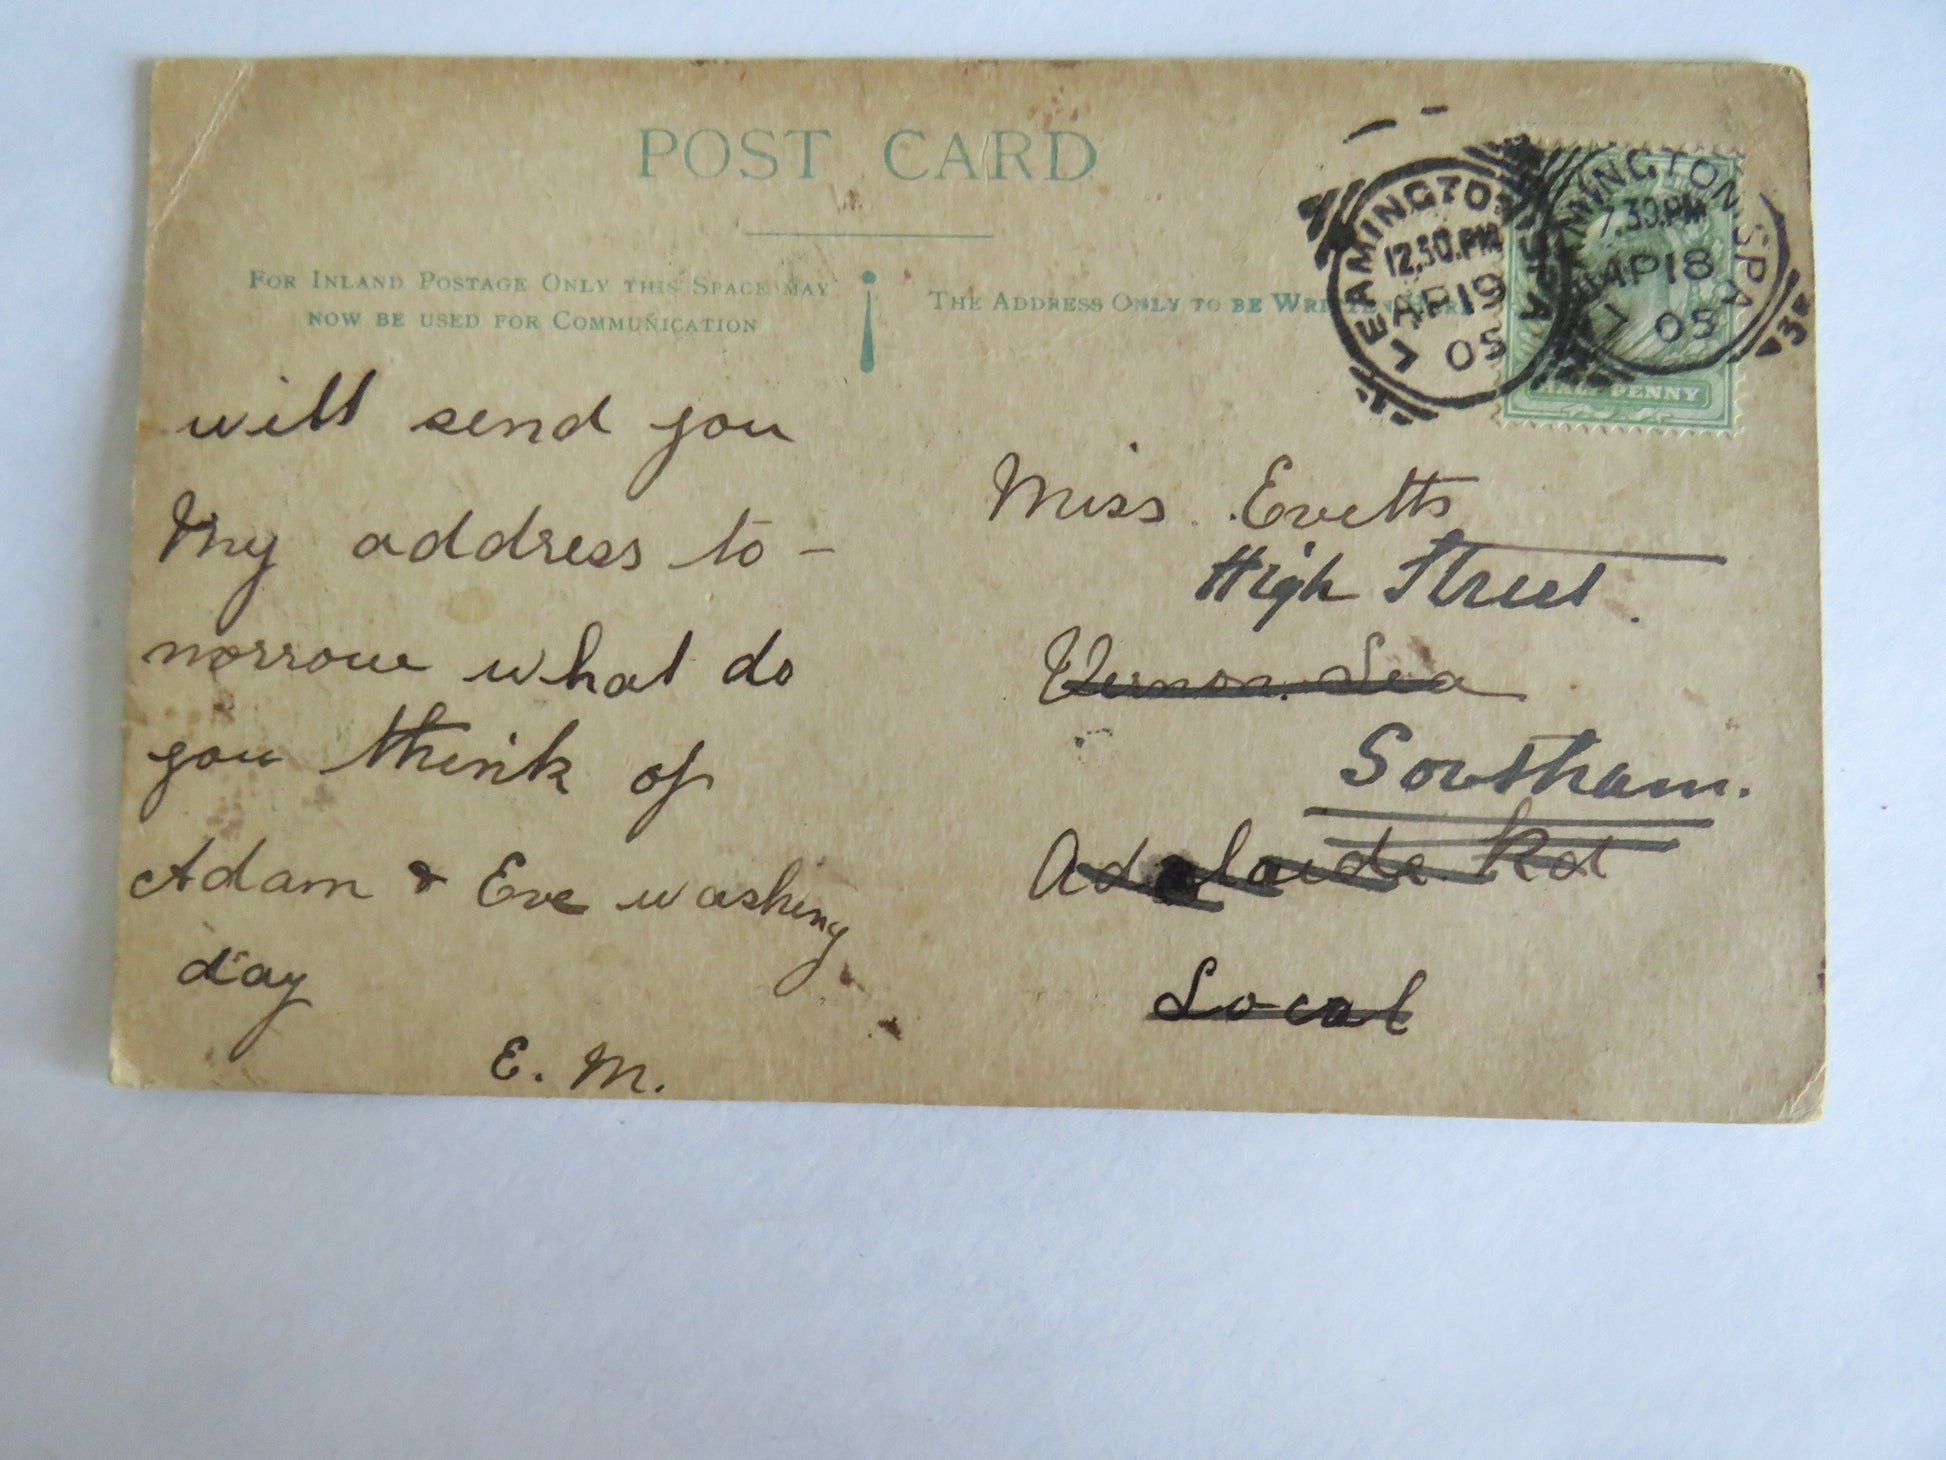 POST CARD
FOR INLAND POSTAGE ONLY THIS SPACE MAY
NOW BE USED FOR COMMUNICATION
THE ADDRESS ONLY TO BE WRITTEN HERE
LEAMINGTON SPA
12.30.PM
AP 19
05
LEAMINGTON SPA
7.30.PM
AP 18
05
HALF PENNY
will send you
My address to-
morrow what do
you think of
Adam & Eve washing
day
E. M.
Miss Evetts
High Street.
Vernon Lea
Southam.
Adelaide Rd
Local